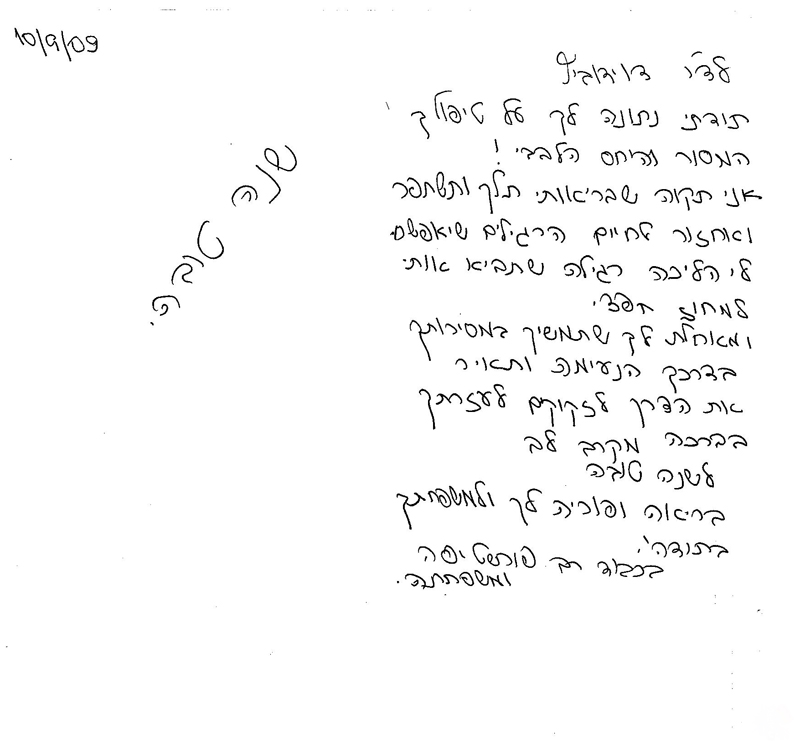 10/9/09
לד"ר דוידוביץ
תודתי נתונה לך על טיפולך
המסור והיחס הלבבי!
אני תקוה שבריאותי תלך ותשתפר
ואחזור לחיים הרגילים שיאפשרו
לי הליכה רגילה שתביא אותי
למחוז חפצי.
ומאחלת לך שתמשיך במסירותך
בדרכך הנעימה ותאיר
את הדרך לזקוקים לעזרתך
בברכה מקרב לב
לשנה טובה
בריאה ופוריה לך ולמשפחתך
בתודה!
בכבוד רב
ומשפחתה.
שנה טובה.